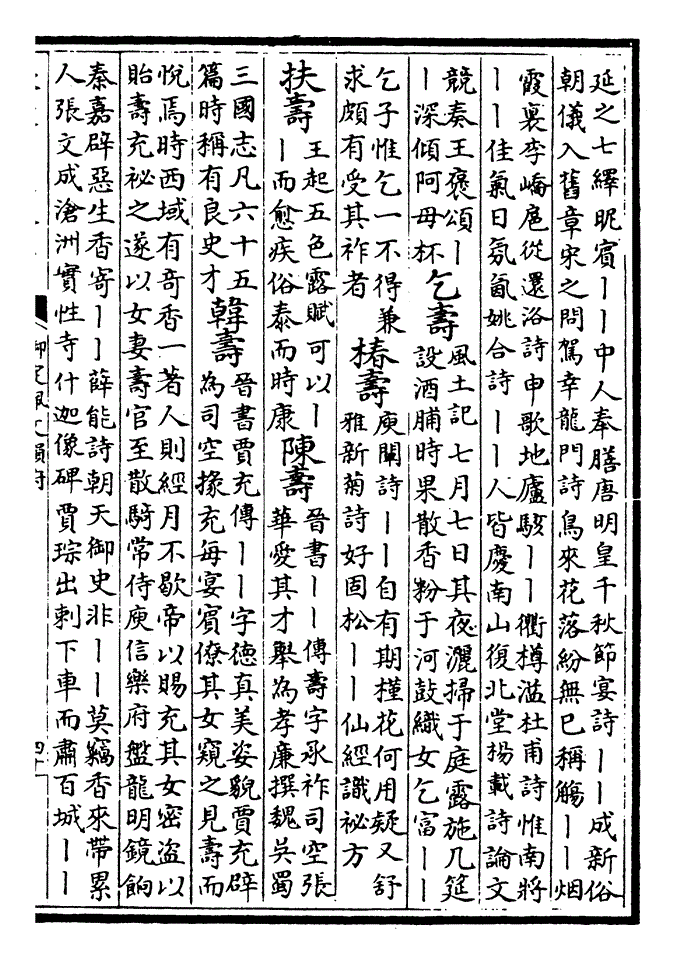 延之七繹昵賓丨丨中人奉膳唐明皇千秋節宴詩丨丨成新俗
朝儀入舊章宋之問駕幸龍門詩鳥來花落紛無已稱觴丨丨烟
霞裏李嶠扈從還洛詩申歌地廬駭丨丨衢樽溢杜甫詩惟南將
丨丨佳氣日氛氳姚合詩丨丨人皆慶南山復北堂楊載詩論文
競奏王褒頌丨
丨深傾阿母杯
乞壽
風土記七月七日其夜灑掃于庭露施几筵
設酒脯時果散香粉于河鼓織女乞富丨丨
乞子惟乞一不得兼
求頗有受其祚者
椿壽
庾闡詩丨丨自有期槿花何用疑又舒
雅新菊詩好固松丨丨仙經識祕方
扶壽
王起五色露賦可以丨
丨而愈疾俗泰而時康
陳壽
晉書丨丨傳壽字承祚司空張
華愛其才舉為孝廉撰魏吳蜀
三國志凡六十五
篇時稱有良史才
韓壽
晉書賈充傳丨丨字德真美姿貌賈充辟
為司空掾充每宴賓僚其女窺之見壽而
悅焉時西域有竒香一著人則經月不歇帝以賜充其女密盜以
貽壽充祕之遂以女妻壽官至散騎常侍庾信樂府盤龍明鏡餉
秦嘉辟惡生香寄丨丨薛能詩朝天御史非丨丨莫竊香來帶累
人張文成滄洲實性寺什迦像碑賈琮出刺下車而肅百城丨丨